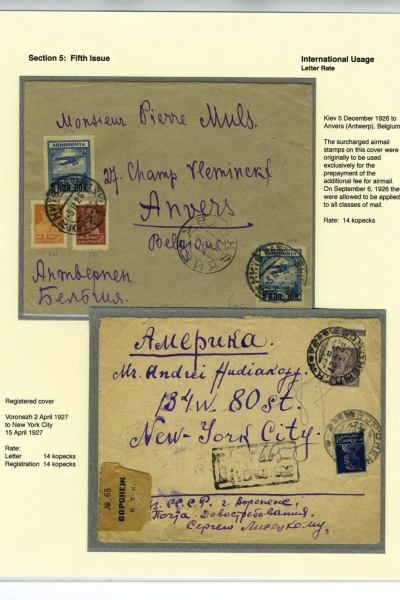 Section 5: Fifth Issue
International Usage
Letter Rate
Monsieur Pierre Muls.
27. Champ Vleminckx
Anvers
Belgique
Антверпен
Бельгия.
АВИОПОЧТА
Kiev 5 December 1926 to
Anvers (Antwerp), Belgium
The surcharged airmail
stamps on this cover were
originally to be used
exclusively for the
prepayment of the
additional fee for airmail.
On September 6, 1926 they
were allowed to be applied
to all classes of mail.
Rate: 14 kopecks
Америка.
Mr. Andrei Hudiakoff
134 w. 80 st.
New-York City.
№ 65
ВОРОНЕЖ
из С.С.С.Р. г. Воронеж,
Почта Довостребования.
Сергею Лисоцкому.
Registered cover
Voronezh 2 April 1927
to New York City
15 April 1927
Rate:
Letter 14 kopecks
Registration 14 kopecks